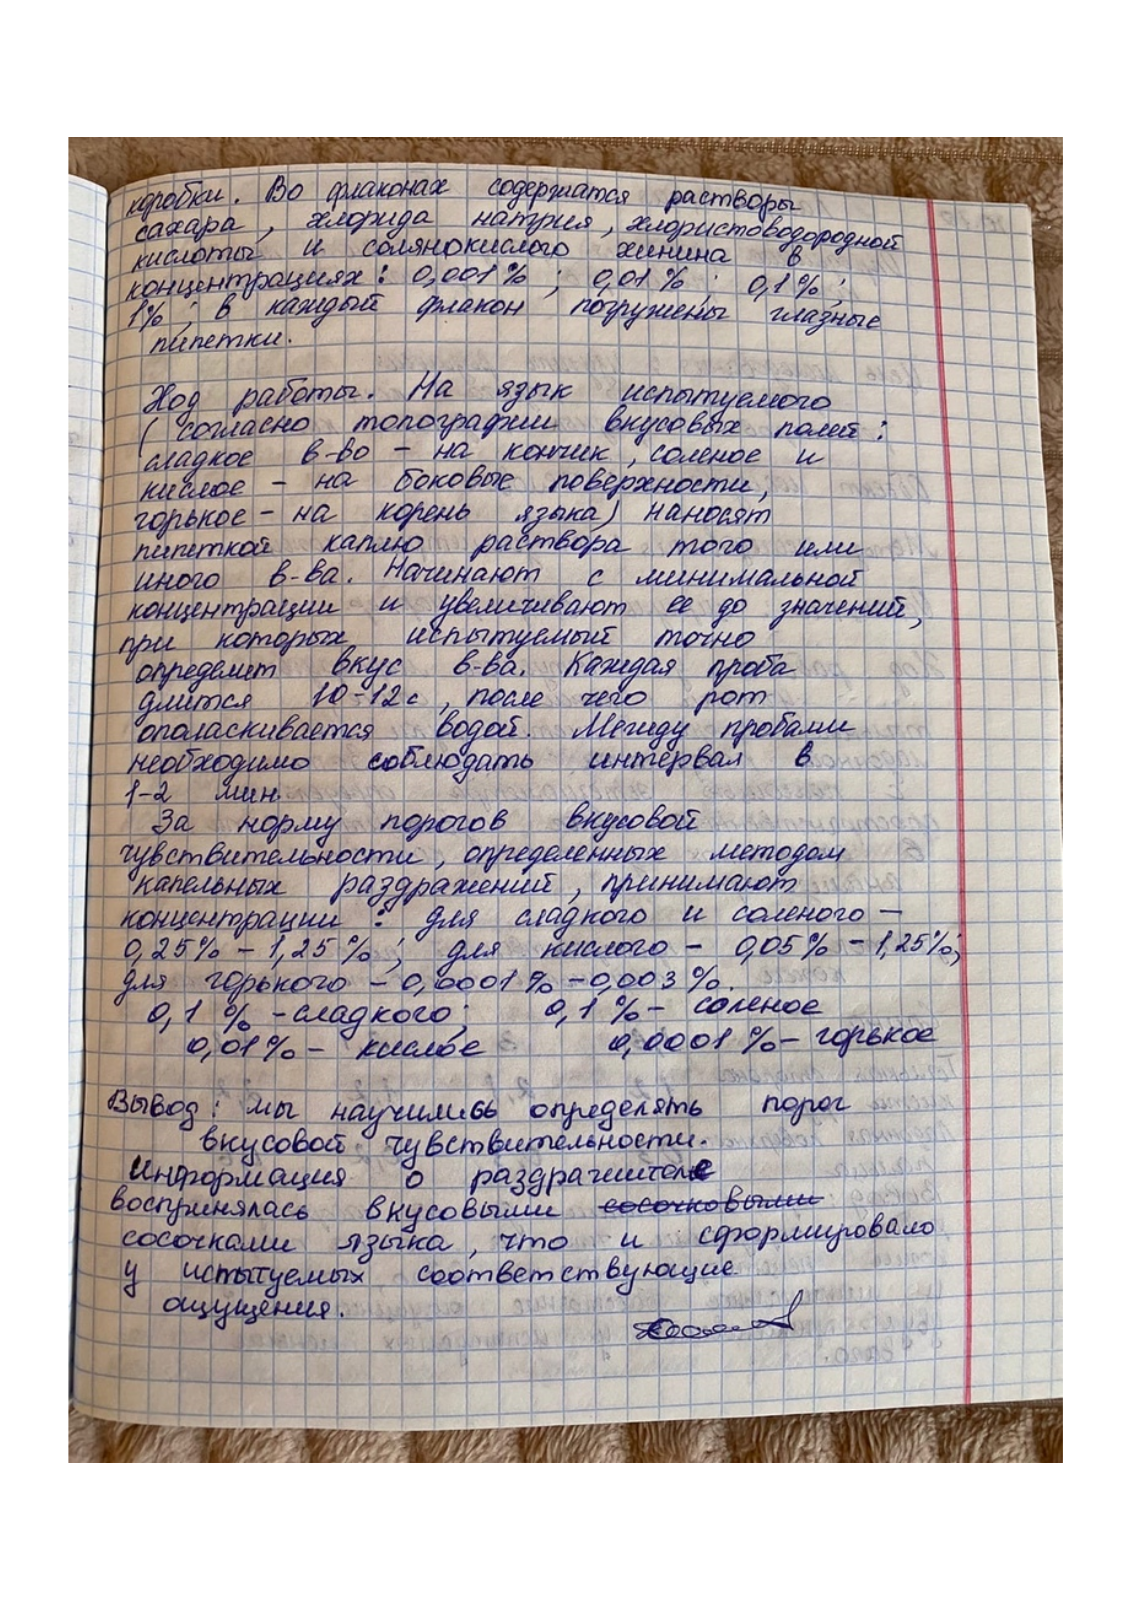 коробки. Во флаконах содержатся растворы
сахара, хлорида натрия, хлористоводородной
кислоты и солянокислого хинина в
концентрациях: 0,001%; 0,01%; 0,1%;
1%; в каждый флакон погружены глазные
пипетки.
Ход работы. На язык испытуемого
(согласно топографии вкусовых полей:
сладкое в-во – на кончик, соленое и
кислое – на боковые поверхности,
горькое – на корень языка) наносят
пипеткой каплю раствора того или
иного в-ва. Начинают с минимальной
концентрации и увеличивают ее до значений,
при которых испытуемый точно
определит вкус в-ва. Каждая проба
длится 10-12 с, после чего рот
ополаскивается водой. Между пробами
необходимо соблюдать интервал в
1-2 мин.
За норму порогов вкусовой
чувствительности, определенных методом
капельных раздражений, принимают
концентрации: для сладкого и соленого –
0,25% – 1,25%; для кислого – 0,05% – 1,25%;
для горького – 0,0001% – 0,003%.
0,1% – сладкого; 0,1% – соленое
0,01% – кислое 0,0001% – горькое
Вывод: мы научились определять порог
вкусовой чувствительности.
Информация о раздражителе
воспринялась вкусовыми сосочковыми
сосочками языка, что и сформировало
у испытуемых соответствующие
ощущения.